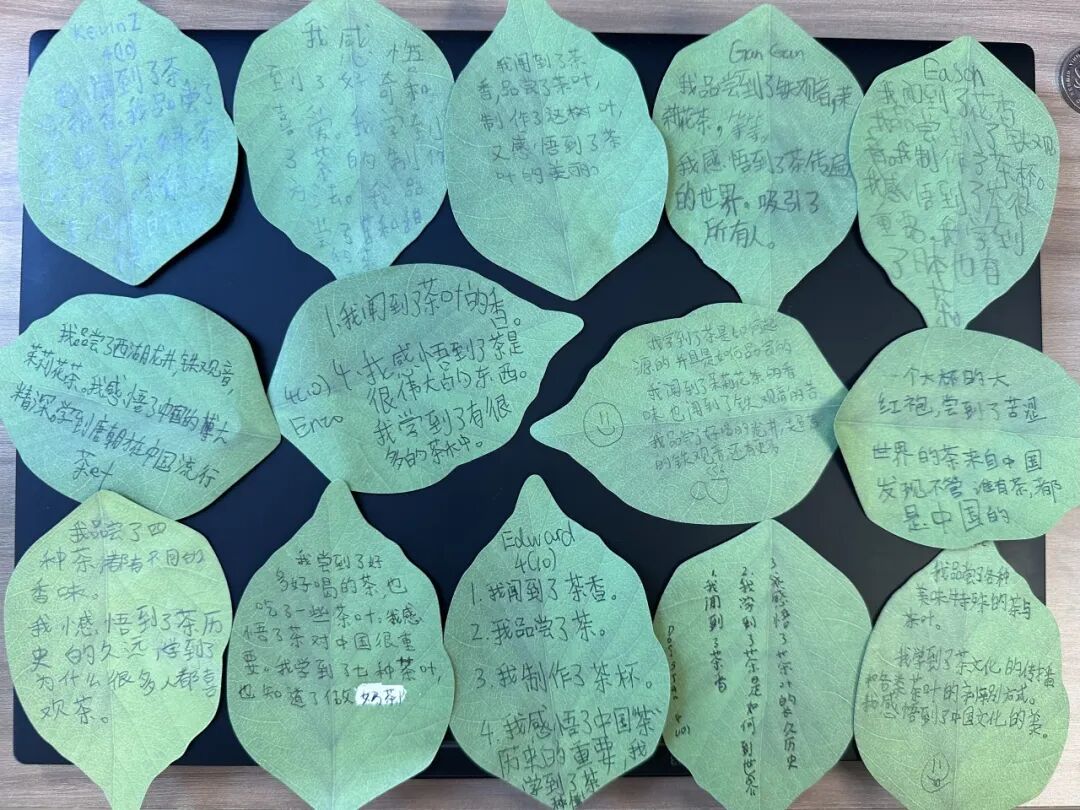 KevinZ
4(10)
我闻到了茶
我品尝了
绿茶
我感悟
到了好奇和
喜 尝。我学到
了茶的制作
方法。我品
尝了
我闻到了茶
香,品尝了茶叶,
制作了这树叶,
又感悟到了茶
叶的美丽。
Gan Gan
我品尝到了铁观音,茉
莉花茶。等等。
我感悟到了茶传遍
的世界。吸引了
所有人。
Eason
我闻到了花香
我品尝了铁观
音。我制作了茶杯。
我感悟到了茶很
重要,我学到
了日本也有
茶
我品尝了西湖龙井,铁观音,
茉莉花茶。我感悟了中国的博大
精深。学到唐朝在中国流行
茶叶
1.我闻到了茶叶的香。
4(10) 4.我感悟到了茶是
Enzo 很伟大的东西。
我学到了有很
多的茶水中。
我学到了茶是如何起
源的并且是如何品尝的
我闻到了茉莉花茶的香
味也闻到了铁观音的苦
我品尝了好喝的龙井
的铁观音还有
一个大杯的大
红袍,尝到了苦涩
世界的茶来自中国
发现不管谁有茶,都
是中国的
我品尝了四
种茶,都有不同的
香味。
我感悟到了茶历
史的久远,学到了
为什么很多人都喜
欢茶。
我尝到了好
多好喝的茶,也
吃了一些茶叶,我感
悟了茶对中国很重
要。我学到了七种茶叶,
也知道了做奶茶!
Edward
4(10)
1.我闻到了茶香。
2.我品尝了茶。
3.我制作了茶杯。
4.我感悟了中国茶
历史的重要,我
学到了茶
3.我感悟了茶叶的长久历史
2.我学到了茶是如何到世界
1.我闻到了茶香
4(10)
我品尝了各种
美味特殊的茶与
茶叶。
我学到了茶文化的传播
和各类茶叶的辨别方式。
我感悟到了中国文化的美。